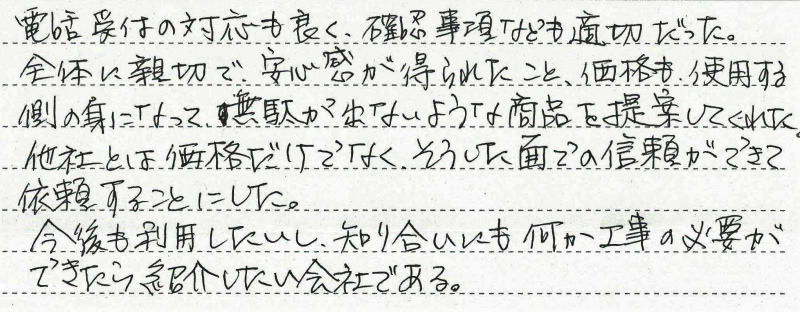 電話受付の対応も良く、確認事項なども適切だった。
全体に親切で、安心感が得られたこと、価格も、使用する
側の身になって、無駄が出ないような商品を提案してくれた。
他社とは価格だけでなく、そうした面での信頼ができて
依頼することにした。
今後も利用したいし、知り合いにも何か工事の必要が
できたら紹介したい会社である。